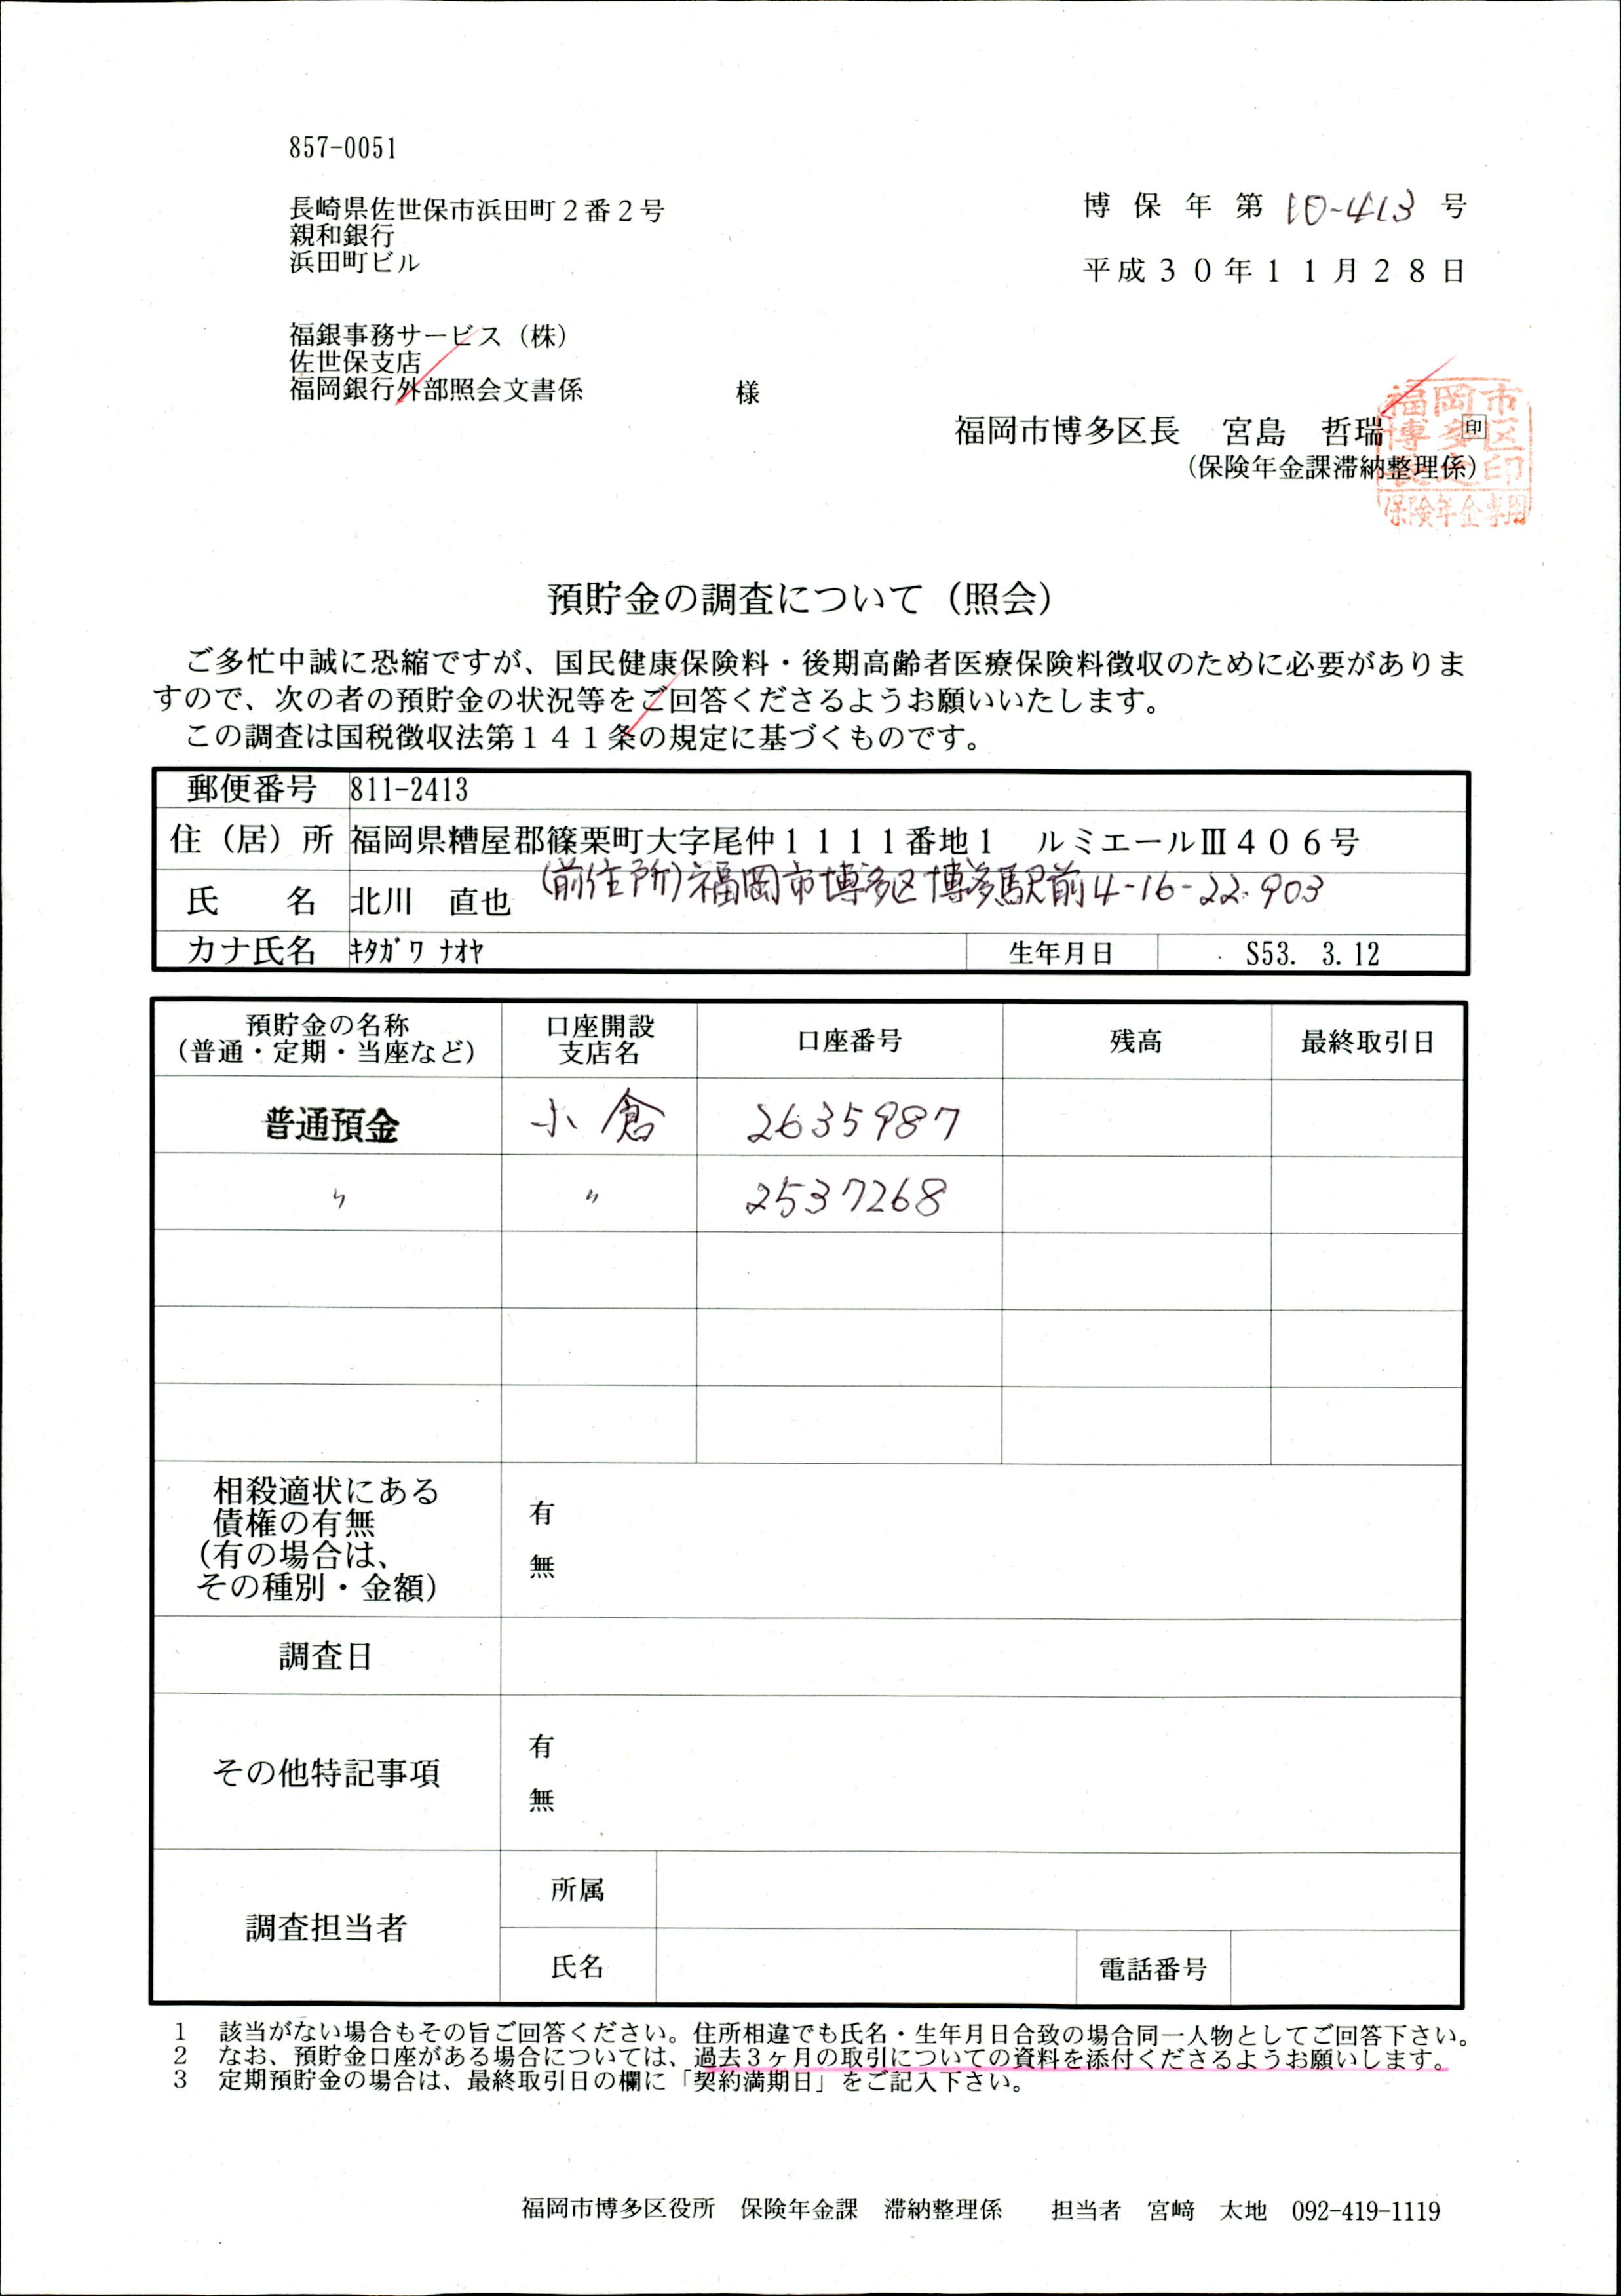 857-0051
長崎県佐世保市浜田町２番２号
親和銀行
浜田町ビル
博保年第10-413号
平成３０年１１月２８日
福銀事務サービス（株）
佐世保支店
福岡銀行外部照会文書係　様
福岡市博多区長　宮島　哲瑞　印
（保険年金課滞納整理係）
福岡市
博多区
長之印
保険年金専用
預貯金の調査について（照会）
ご多忙中誠に恐縮ですが、国民健康保険料・後期高齢者医療保険料徴収のために必要がありま
すので、次の者の預貯金の状況等をご回答くださるようお願いいたします。
この調査は国税徴収法第１４１条の規定に基づくものです。
郵便番号　811-2413
住（居）所　福岡県糟屋郡篠栗町大字尾仲１１１１番地１　ルミエールⅢ４０６号
(前住所)福岡市博多区博多駅前4-16-22.903
氏　名　北川　直也
カナ氏名　ｷﾀｶﾞﾜ ﾅｵﾔ　生年月日　S53. 3.12
預貯金の名称　口座開設　口座番号　残高　最終取引日
（普通・定期・当座など）　支店名
普通預金　小倉　2635987
〃　〃　2537268
相殺適状にある
債権の有無
（有の場合は、
その種別・金額）
有
無
調査日
その他特記事項
有
無
調査担当者
所属
氏名　電話番号
1　該当がない場合もその旨ご回答ください。住所相違でも氏名・生年月日合致の場合同一人物としてご回答下さい。
2　なお、預貯金口座がある場合については、過去３ヶ月の取引についての資料を添付くださるようお願いします。
3　定期預貯金の場合は、最終取引日の欄に「契約満期日」をご記入下さい。
福岡市博多区役所　保険年金課　滞納整理係　担当者　宮﨑　太地　092-419-1119